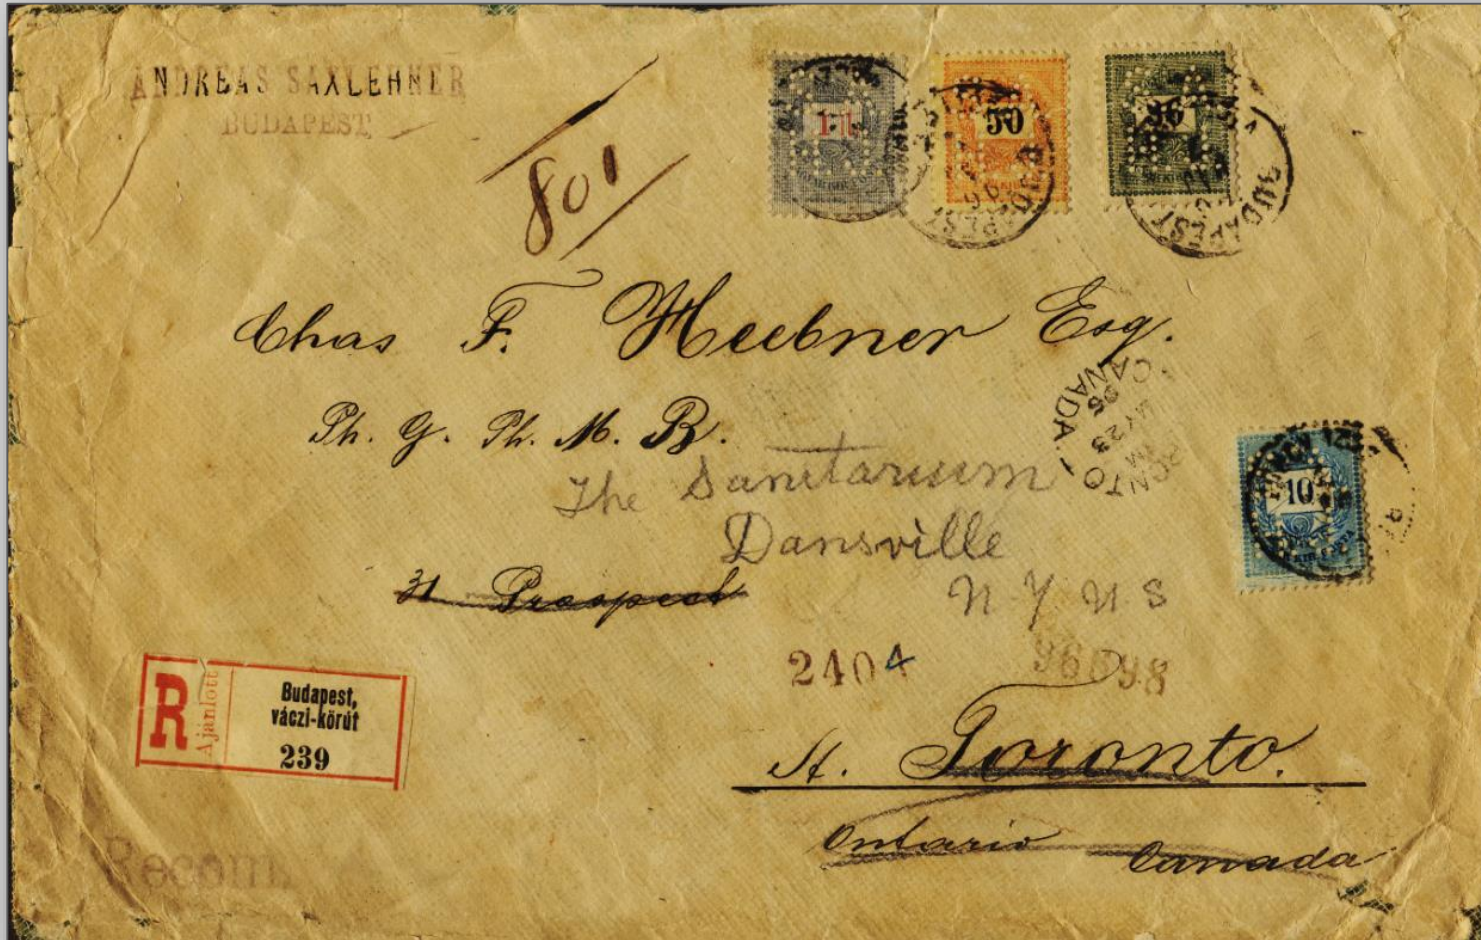 ANDREAS SAXLEHNER
BUDAPEST
801
1 ft.
50
BUDAPEST
96
BUDAPEST
Chas F. Heebner Esq.
Ph. G. Ph. M. B.
CANADA
MY 23
PM
95
10
The Sanitarium
Dansville
N Y U S
31 Prospect
2404
96698
R
Ajánlott
Budapest,
váczi-körút
239
St. Toronto.
Ontario Canada
Recom.